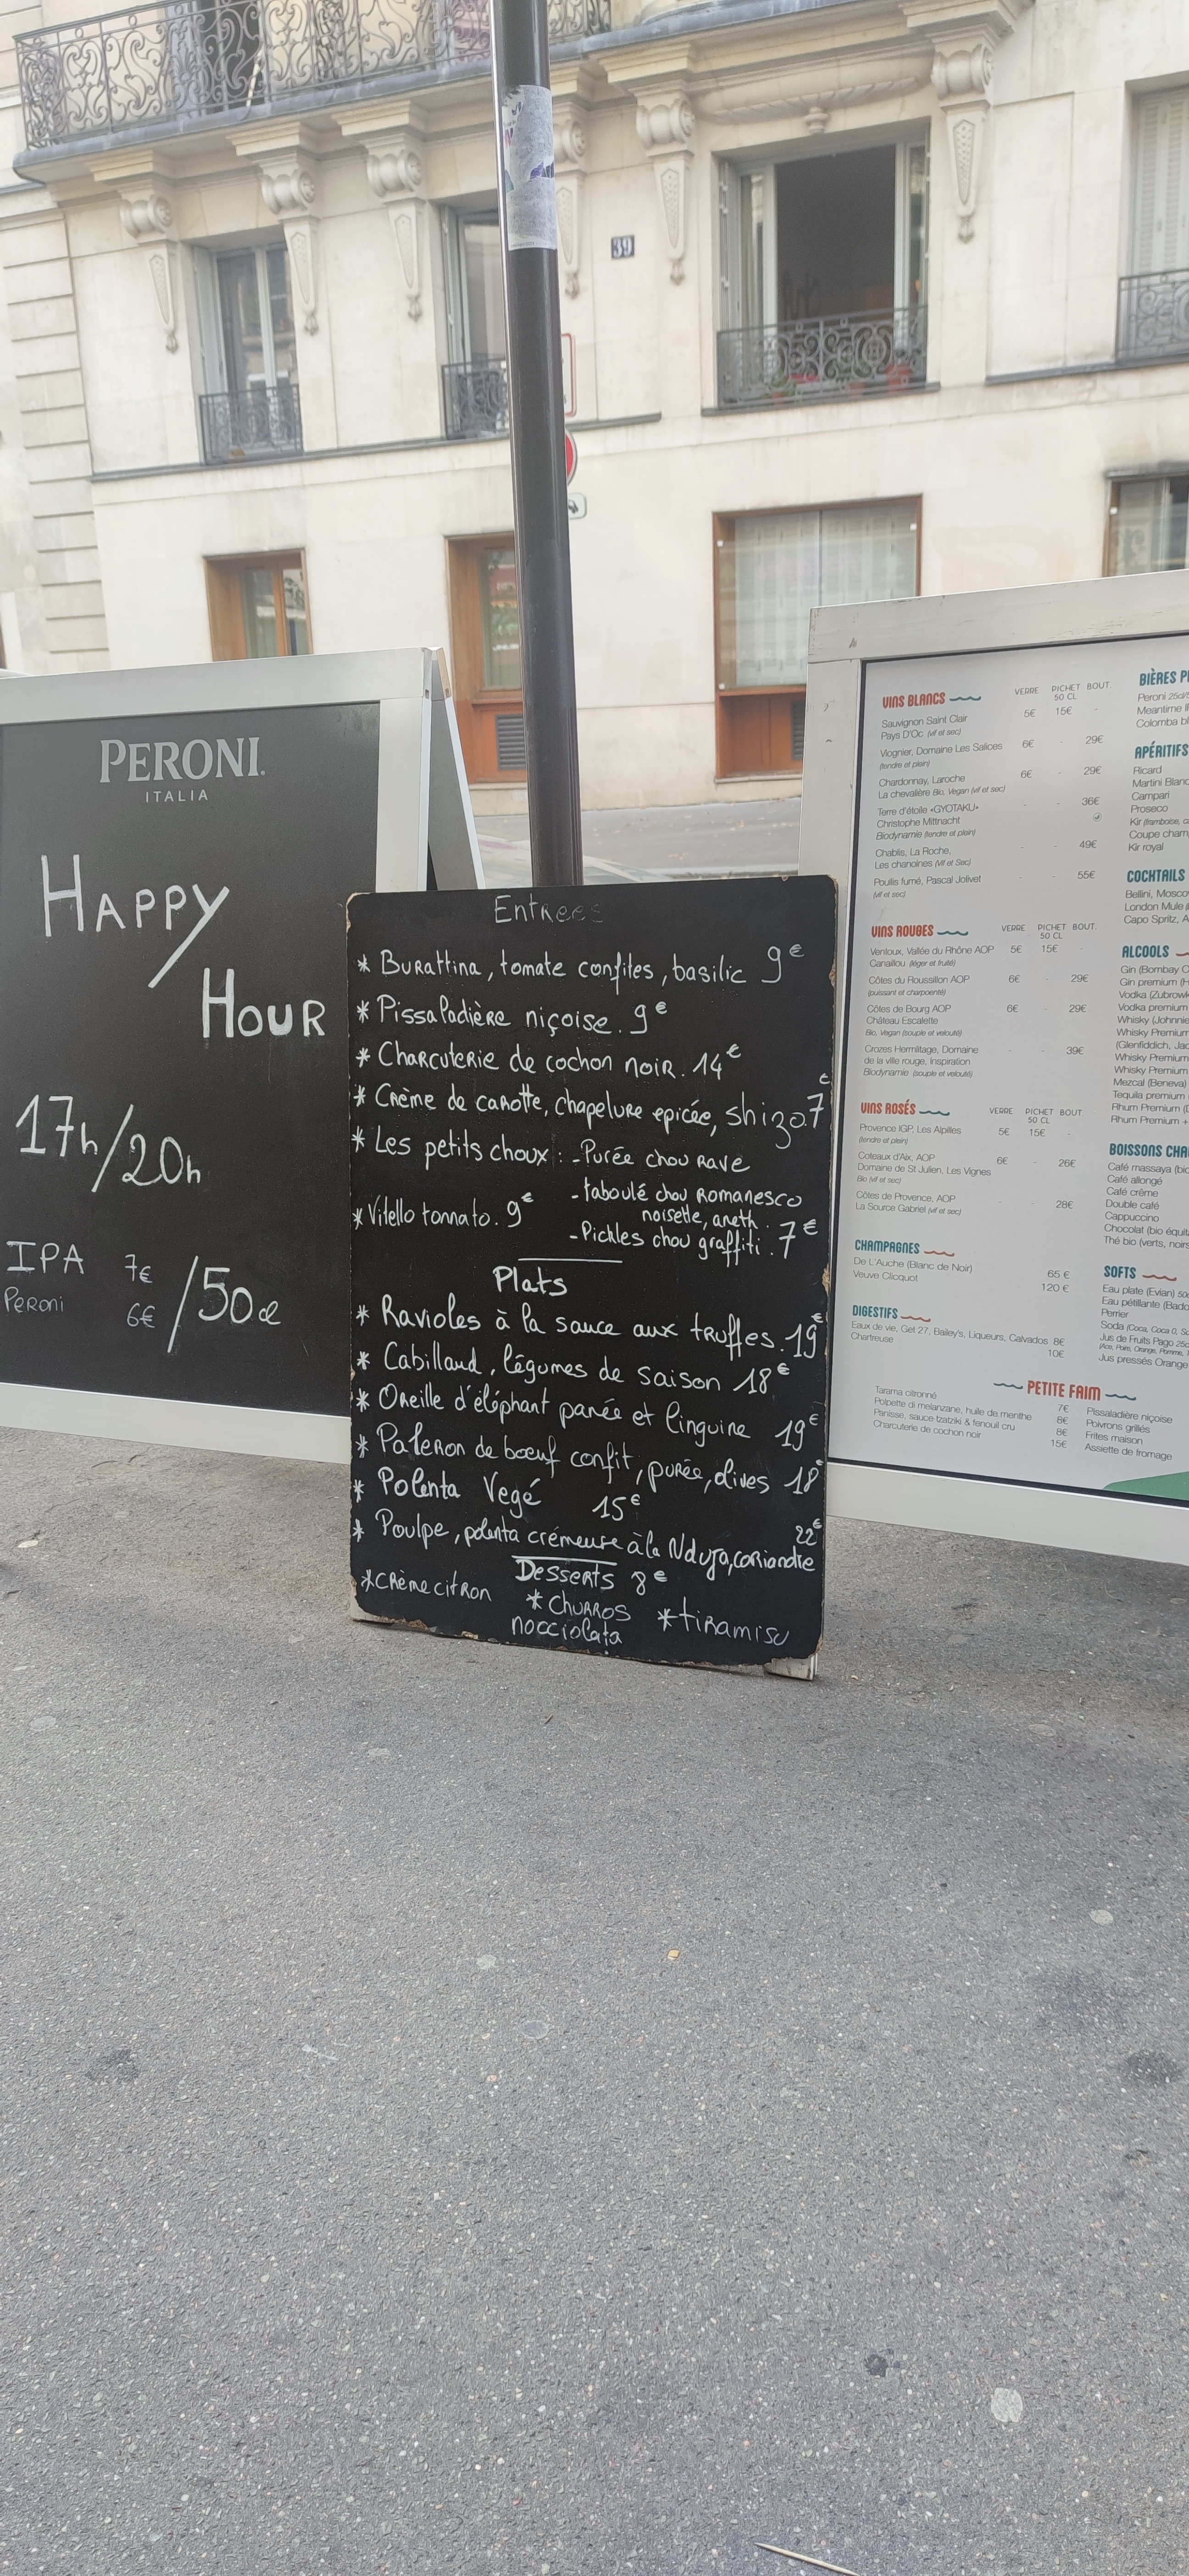 39
PERONI
ITALIA
HAPPY
HOUR
17h/20h
IPA 7€
Peroni 6€ /50cl
Entrées
* Burattina, tomate confites, basilic 9€
* Pissaladière niçoise. 9€
* Charcuterie de cochon noir. 14€
* Crème de carotte, chapelure epicée, shizo 7€
* Les petits choux : - Purée chou rave
- taboulé chou Romanesco
noisette, aneth.
- Pickles chou graffiti. 7€
* Vitello tonnato. 9€
Plats
* Ravioles à la sauce aux truffes. 19€
* Cabillaud, légumes de saison 18€
* Oreille d'éléphant panée et linguine 19€
* Paleron de bœuf confit, purée, olives 18€
* Polenta Vegé 15€
* Poulpe, polenta crémeuse à la Nduja, coriandre 22€
Desserts 8€
* Crème citron
* Churros
nocciolata
* tiramisu
VINS BLANCS VERRE PICHET 50 CL BOUT.
Sauvignon Saint Clair
Pays D'Oc (vif et sec) 5€ 15€ -
Viognier, Domaine Les Salices 6€ - 29€
(tendre et plein)
Chardonnay, Laroche 6€ - 29€
La chevalière Bio, Vegan (vif et sec)
Terre d'étoile «GYOTAKU» - - 36€
Christophe Mittnacht
Biodynamie (tendre et plein)
Chablis, La Roche, - - 49€
Les chanoines (Vif et Sec)
Pouilly fumé, Pascal Jolivet - - 55€
(vif et sec)
VINS ROUGES VERRE PICHET 50 CL BOUT.
Ventoux, Vallée du Rhône AOP 5€ 15€
Canaillou (léger et fruité)
Côtes du Roussillon AOP 6€ - 29€
(puissant et charpenté)
Côtes de Bourg AOP 6€ - 29€
Château Escalette
Bio, Vegan (souple et velouté)
Crozes Hermitage, Domaine - - 39€
de la ville rouge, Inspiration
Biodynamie (souple et velouté)
VINS ROSÉS VERRE PICHET 50 CL BOUT
Provence IGP, Les Alpilles 5€ 15€ -
(tendre et plein)
Coteaux d'Aix, AOP 6€ - 26€
Domaine de St Julien, Les Vignes
Bio (vif et sec)
Côtes de Provence, AOP - - 28€
La Source Gabriel (vif et sec)
CHAMPAGNES
De L'Auche (Blanc de Noir) 65 €
Veuve Clicquot 120 €
DIGESTIFS
Eaux de vie, Get 27, Bailey's, Liqueurs, Calvados 8€
Chartreuse 10€
PETITE FAIM
Tarama citronné 7€
Polpette di melanzane, huile de menthe 8€
Panisse, sauce tzatziki & fenouil cru 8€
Charcuterie de cochon noir 15€
Pissaladière niçoise
Poivrons grillés
Frites maison
Assiette de fromage
BIÈRES P
Peroni 25cl/5
Meantime I
Colomba bl
APÉRITIFS
Ricard
Martini Blanc
Campari
Proseco
Kir (framboise, c
Coupe cham
Kir royal
COCKTAILS
Bellini, Mosco
London Mule
Capo Spritz, A
ALCOOLS
Gin (Bombay
Gin premium
Vodka (Zubrowk
Vodka premium
Whisky (Johnnie
Whisky Premium
(Glenfiddich, Jac
Whisky Premium
Whisky Premium
Mezcal (Beneva)
Tequila premium
Rhum Premium
Rhum Premium +
BOISSONS CHA
Café massaya (bio
Café allongé
Café crème
Double café
Cappuccino
Chocolat (bio équit
Thé bio (verts, noirs
SOFTS
Eau plate (Evian) 50
Eau pétillante (Bado
Perrier
Soda (Coca, Coca 0,
Jus de Fruits Pago 25c
Jus pressés Orange